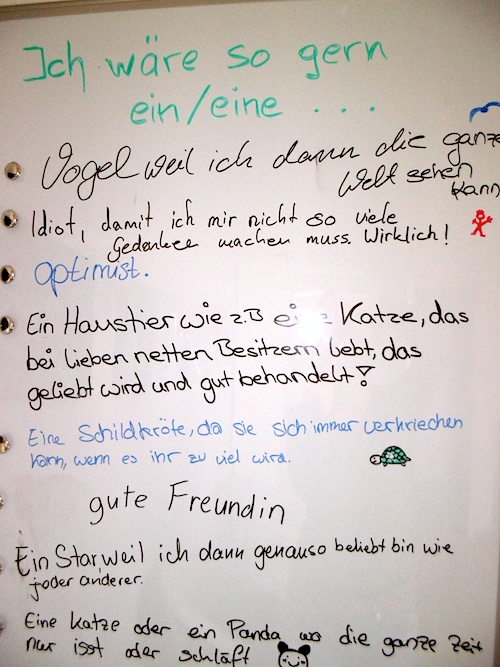 Ich wäre so gern
ein/eine ...
Vogel weil ich dann die ganze
Welt sehen
kann
Idiot, damit ich mir nicht so viele
Gedanken machen muss. Wirklich!
optimist.
Ein Haustier wie z.B eine Katze, das
bei lieben netten Besitzern lebt, das
geliebt wird und gut behandelt!
Eine Schildkröte, da sie sich immer verkriechen
kann, wenn es ihr zu viel wird.
gute Freundin
Ein Star weil ich dann genauso beliebt bin wie
jeder anderer.
Eine Katze oder ein Panda wo die ganze Zeit
nur isst oder schläft